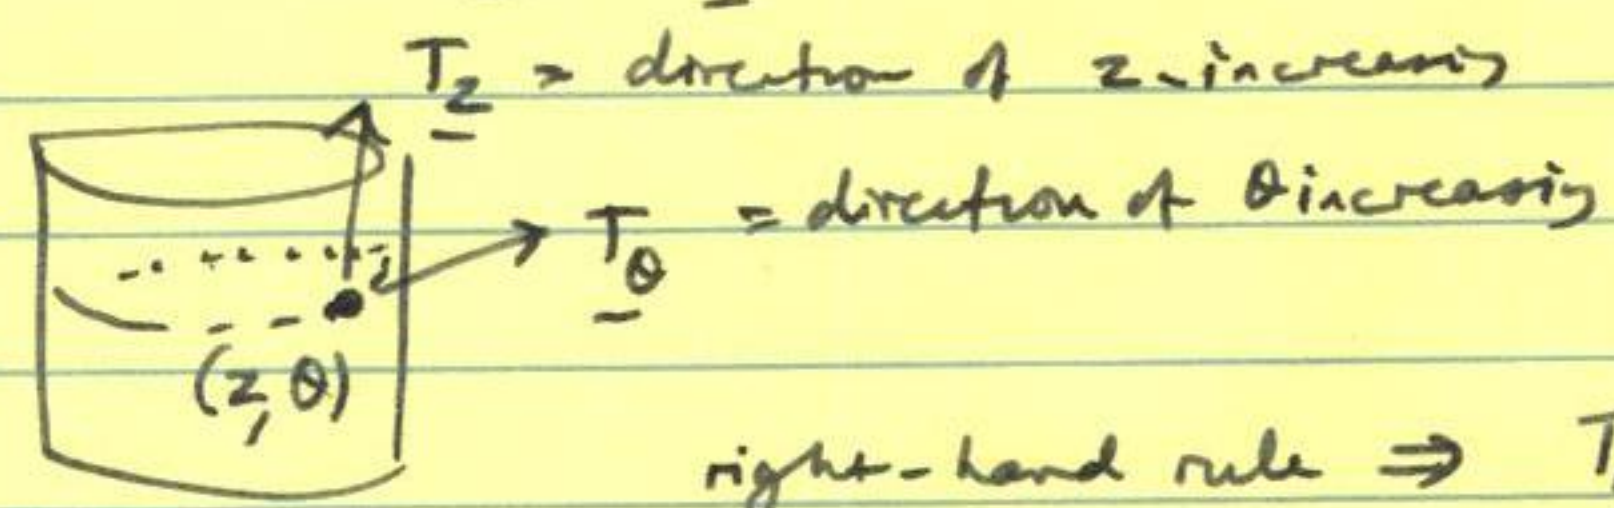 T_z = direction of z-increasing
T_θ = direction of θ increasing
(z, θ)
right-hand rule ⇒ T